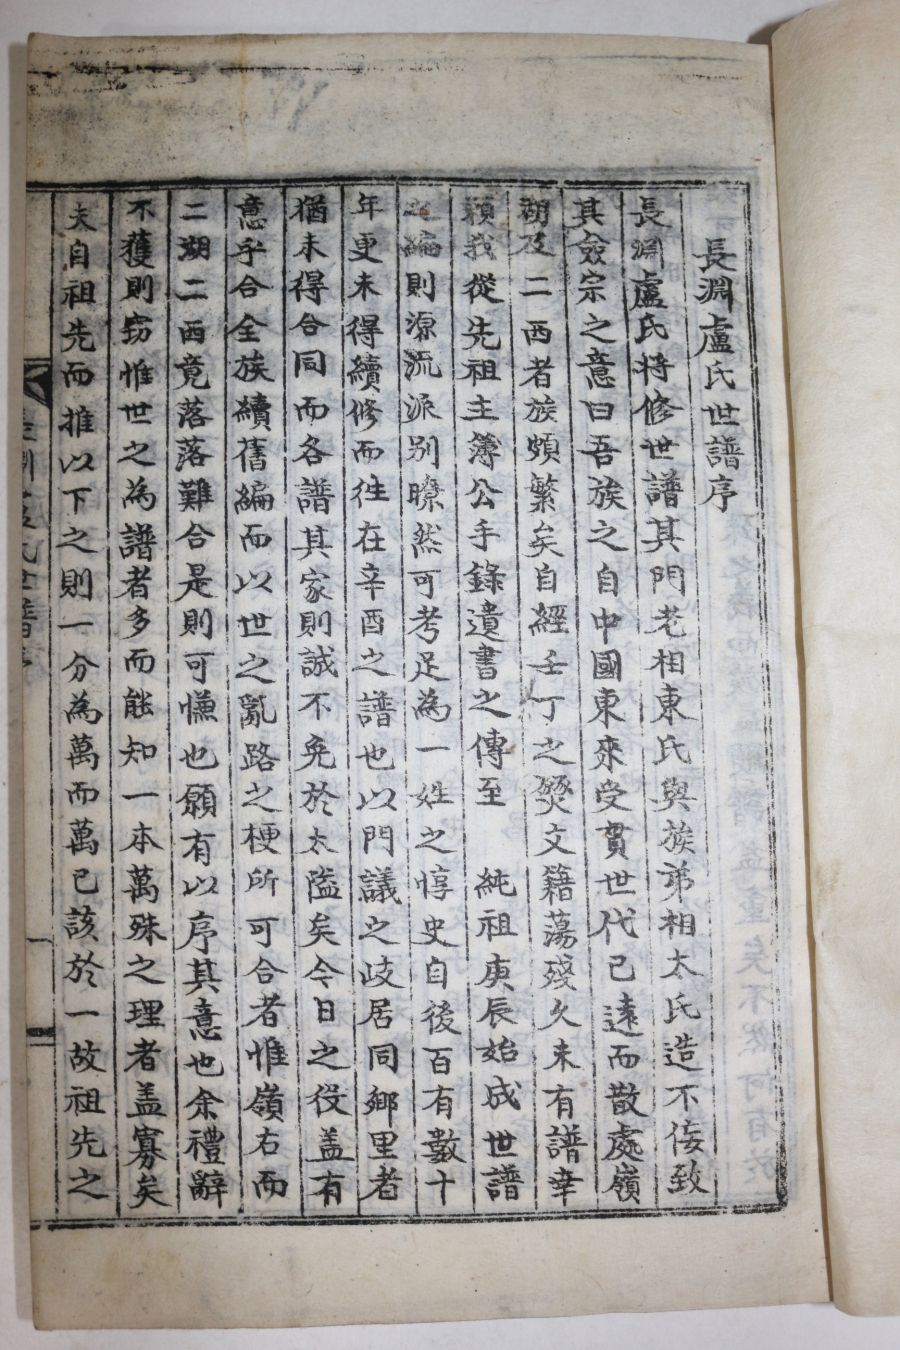 長淵盧氏世譜序
長淵盧氏將修世譜其門老相東氏與族弟相太氏造不佞致
其僉宗之意曰吾族之自中國東來受貫世代已遠而散處嶺
湖及二西者族頗繁矣自經壬丁之燹文籍蕩殘久未有譜幸
賴我從先祖主簿公手錄遺書之傳至 純祖庚辰始成世譜
之編則源流派別瞭然可考足為一姓之惇史自後百有數十
年更未得續修而徃在辛酉之譜也以門議之歧居同鄉里者
猶未得合同而各譜其家則誠不免於太隘矣今日之役盖有
意乎合全族續舊編而以世之亂路之梗所可合者惟嶺右而
二湖二西竟落落難合是則可慊也願有以序其意也余禮辭
不獲則窃惟世之為譜者多而能知一本萬殊之理者盖寡矣
夫自祖先而推以下之則一分為萬而萬已該於一故祖先之
氏世譜序
一